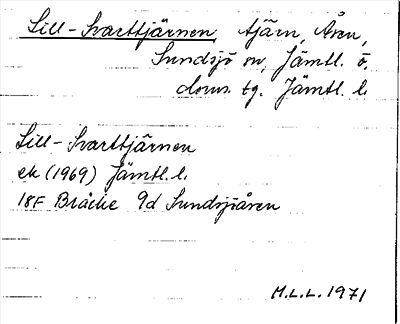 Lill-Svarttjärnen, tjärn, Åsen,
Sundsjö sn, Jämtl. ö.
doms. tg. Jämtl. l.
Lill-Svarttjärnen
ek (1969) Jämtl. l.
18F Bräcke 9d Sundsjöåsen
M.L.L. 1971